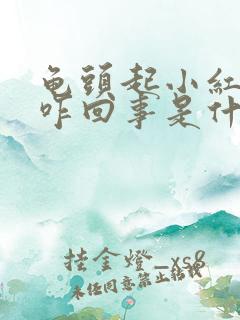 龟頭起小紅
咋回事是什
挂金燈_xs8
未经同意禁止转载